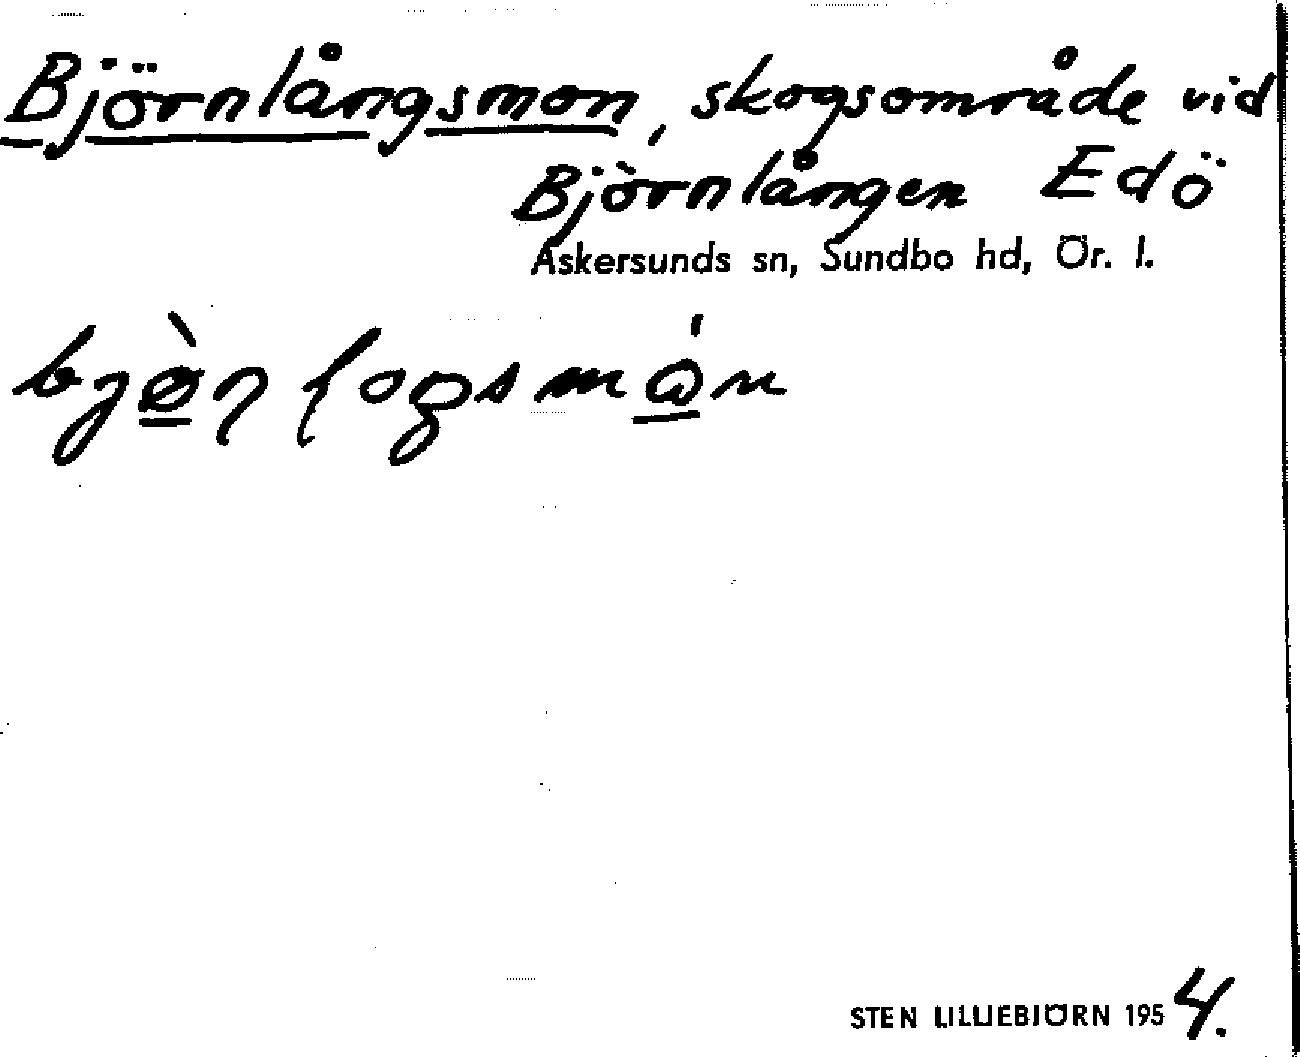 Björnlångsmon, skogsområde vid
Björnlången Edö
Askersunds sn, Sundbo hd, Ör. l.
STEN LILLIEBJÖRN 1954.